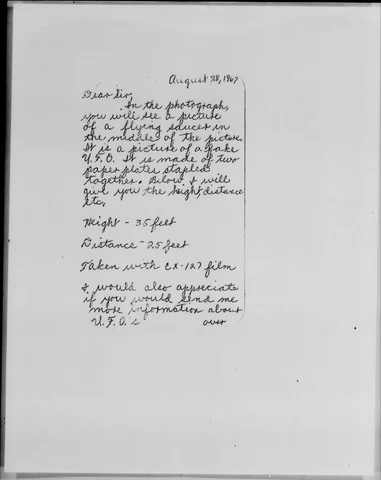 August 28, 1967
Dear Sir,
In the photograph,
you will see a picture
of a flying saucer in
the middle of the picture.
It is a picture of a fake
U.F.O. It is made of two
paper plates stapled
together. Below, I will
give you the height, distance
etc.
Height - 35 feet
Distance - 25 feet
Taken with CX-127 film
I would also appreciate
if you would send me
more information about
U.F.O.'s over